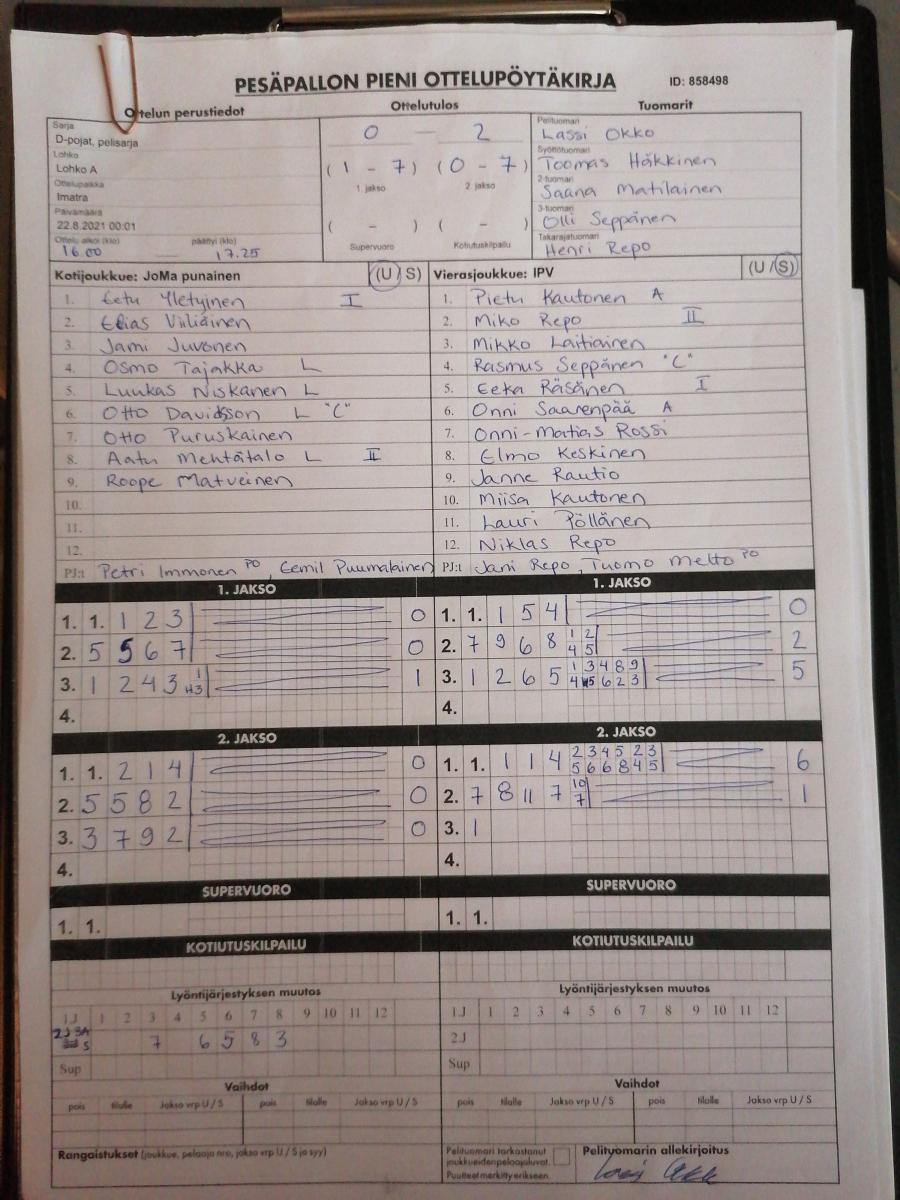 PESÄPALLON PIENI OTTELUPÖYTÄKIRJA ID: 858498
Ottelun perustiedot Ottelutulos Tuomarit
Sarja
D-pojat, pelisarja
Lohko
Lohko A
Ottelupaikka
Imatra
Päivämäärä
22.8.2021 00:01
Ottelu alkoi (klo) päättyi (klo)
16.00 — 17.25
0 — 2
(1 - 7) (0 - 7)
1. jakso 2. jakso
( - ) ( - )
Supervuoro Kotiutuskilpailu
Pelituomari
Lassi Okko
Syöttötuomari
Toomas Häkkinen
2-tuomari
Saana Matilainen
3-tuomari
Olli Seppänen
Takarajatuomari
Henri Repo
Kotijoukkue: JoMa punainen (U / S)
1. Eetu Yletyinen I
2. Elias Viiliäinen
3. Jami Juvonen
4. Osmo Tajakka L
5. Luukas Niskanen L
6. Otto Davidsson L "C"
7. Otto Puruskainen
8. Aatu Mehtätalo L II
9. Roope Matveinen
10.
11.
12.
PJ:t Petri Immonen PO, Eemil Puumalainen
Vierasjoukkue: IPV (U / S)
1. Pietu Kautonen A
2. Miko Repo II
3. Mikko Laitiainen
4. Rasmus Seppänen "C"
5. Eeka Räsänen I
6. Onni Saarenpää A
7. Onni-Matias Rossi
8. Elmo Keskinen
9. Janne Rautio
10. Miisa Kautonen
11. Lauri Pöllänen
12. Niklas Repo
PJ:t Jani Repo, Tuomo Melto PO
1. JAKSO
1. 1. 1 2 3 0
2. 5 5 6 7 0
3. 1 2 4 3 1
4.
1. JAKSO
1. 1. 1 5 4 0
2. 7 9 6 8 1 2 4 5 2
3. 1 2 6 5 1 3 4 8 9 5
4.
2. JAKSO
1. 1. 2 1 4 0
2. 5 5 8 2 0
3. 3 7 9 2 0
4.
2. JAKSO
1. 1. 1 1 4 2 3 4 5 2 3 5 6 6 8 4 5 6
2. 7 8 11 7 10 7 1
3. 1
4.
SUPERVUORO
1. 1.
SUPERVUORO
1. 1.
KOTIUTUSKILPAILU
KOTIUTUSKILPAILU
Lyöntijärjestyksen muutos
1J 1 2 3 4 5 6 7 8 9 10 11 12
2J 7 6 5 8 3
Sup
Lyöntijärjestyksen muutos
1J 1 2 3 4 5 6 7 8 9 10 11 12
2J
Sup
Vaihdot
pois tilalle Jakso vrp U / S pois tilalle Jakso vrp U / S
Vaihdot
pois tilalle Jakso vrp U / S pois tilalle Jakso vrp U / S
Rangaistukset (joukkue, pelaaja nro, jakso vrp U / S ja syy)
Pelituomari tarkastanut
joukkueiden pelaajaluvat.
Puutteet merkitty erikseen.
Pelituomarin allekirjoitus